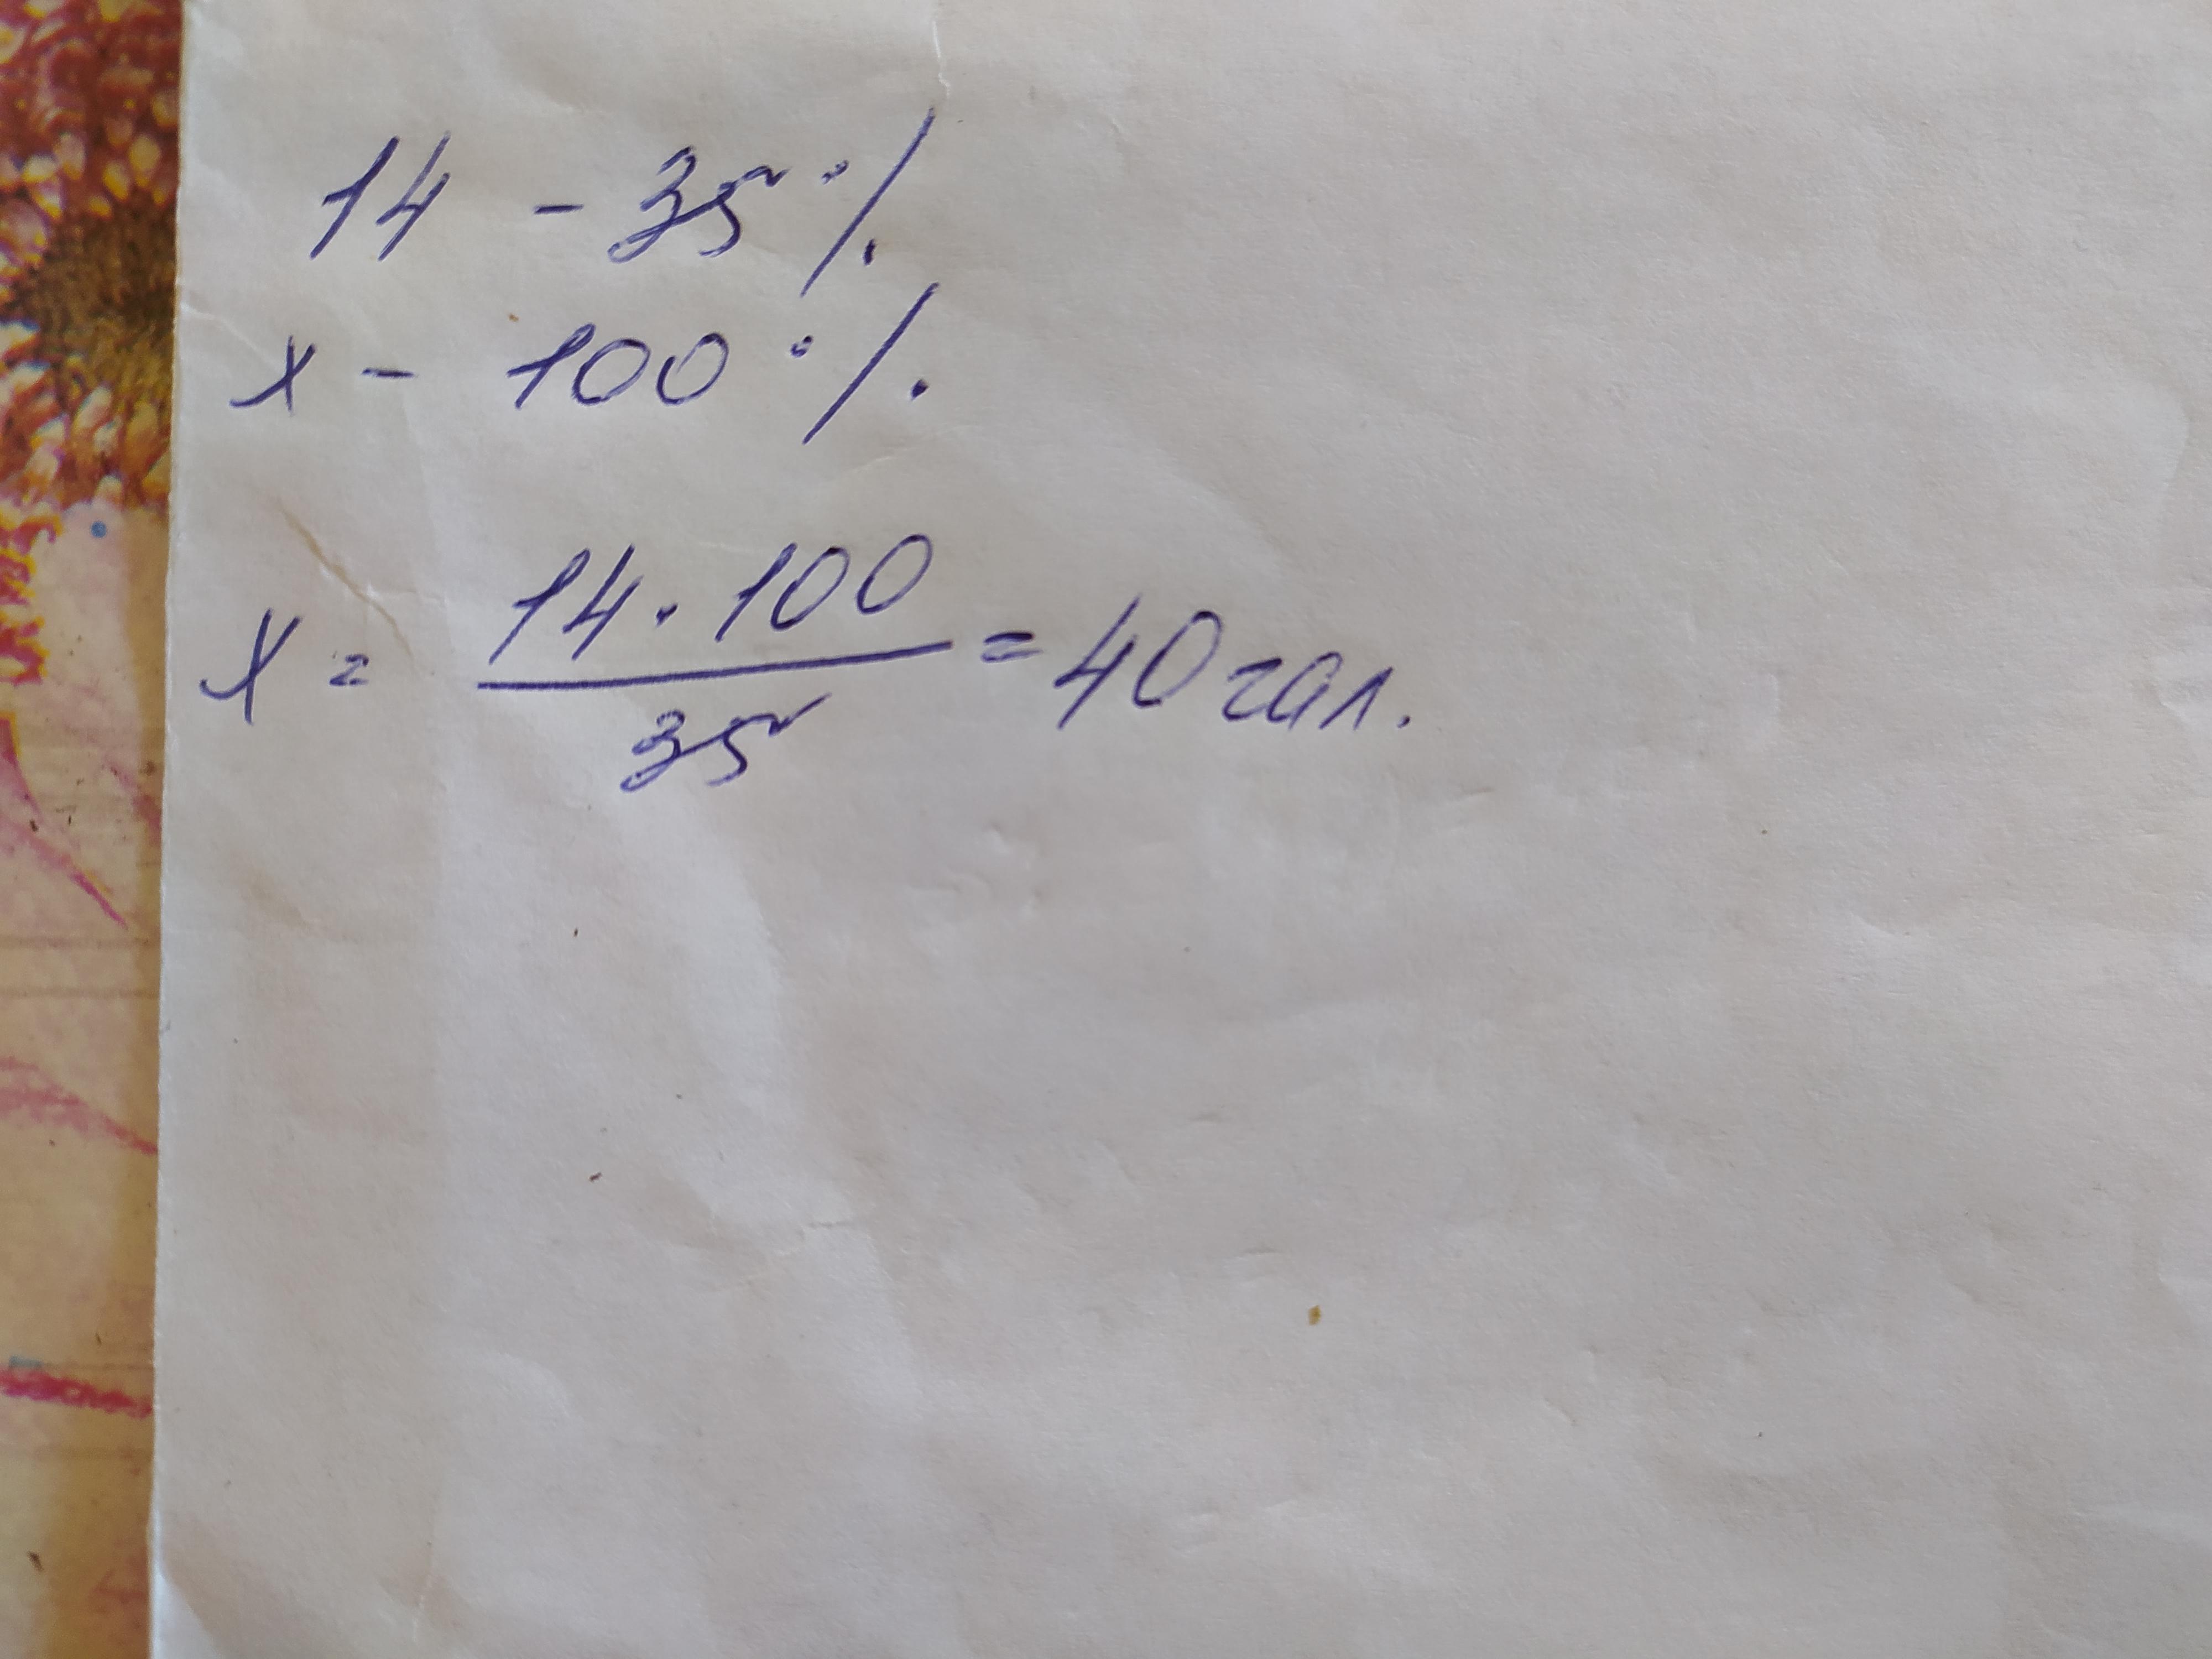 14 - 35 %
x - 100 %
x = 14 · 100 / 35 = 40 гал.